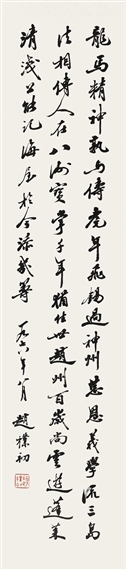 龍馬精神孰與儔虎年飛錫過神州慈恩義學流三島
法相傳人在八洲寶掌千年猶住世趙州百歲尚雲遊蓬萊
清淺公能記海屋於今添幾籌 一九八六年八月 趙樸初